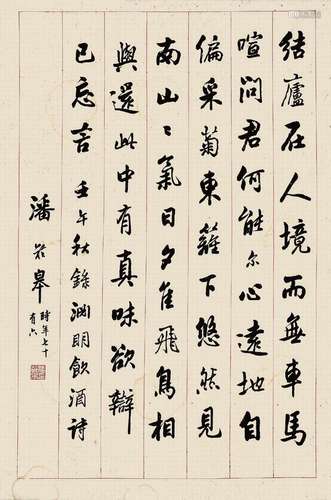 結廬在人境而無車馬
喧問君何能尔心遠地自
偏采菊東籬下悠然見
南山〻氣日夕佳飛鳥相
與還此中有真味欲辯
已忘言 壬午秋錄淵明飲酒詩
潘齡皋 時年七十
有六